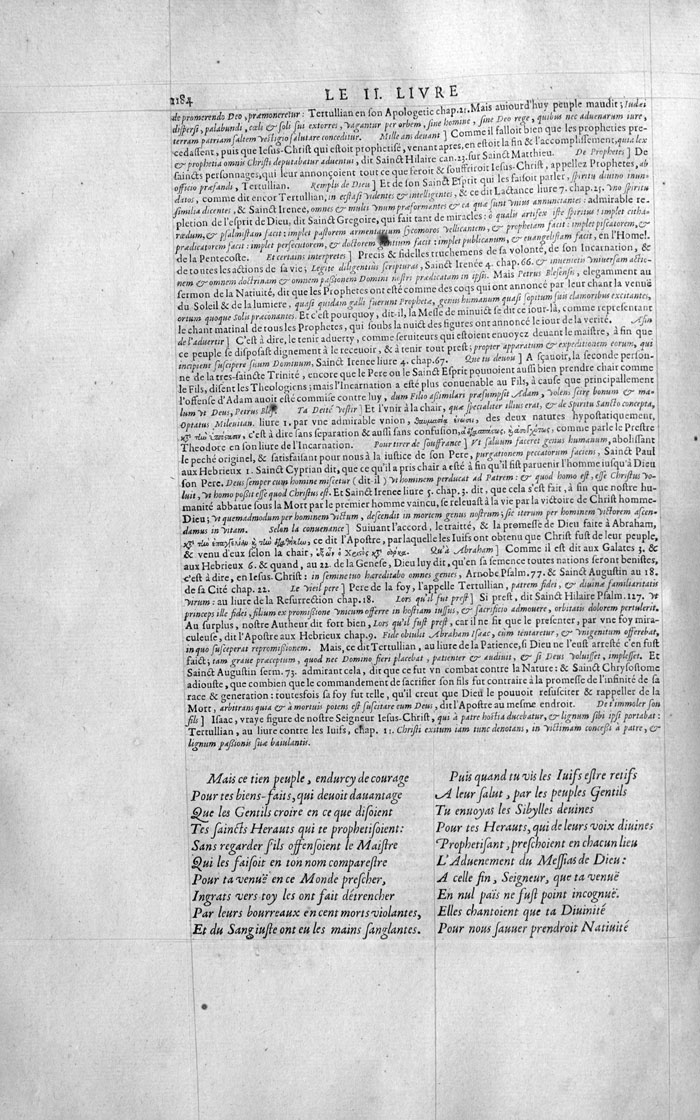 LE II. LIVRE
1184
de promerendo Deo, præmoneretur: Tertullian en son Apologetic chap. 21. Mais auiourd'huy peuple maudit; Iudæi
dispersi, palabundi, cœli & soli sui extorres, vagantur per orbem, sine homine, sine Deo rege, quibus nec aduenarum iure,
terram patriam saltem vestigio salutare conceditur. Mille ans deuant ] Comme il falloit bien que les propheties pre-
cedassent, puis que Iesus-Christ qui estoit prophetisé, venant apres, en estoit la fin & l'accomplissement, quia lex
& prophetia omnis Christi deputabatur aduentui, dit Sainct Hilaire can. 23. sur Sainct Matthieu. De Prophetes ] De
saincts personnages, qui leur annonçoient tout ce que feroit & souffriroit Iesus-Christ, appellez Prophetes, ab
officio præfandi, Tertullian. Remplis de Dieu ] Et de son Sainct Esprit qui les faisoit parler, spiritu diuino inun-
datos, comme dit encor Tertullian, in ecstasi videntes & intelligentes, & ce dit Lactance liure 7. chap. 25. vno spiritu
similia dicentes, & Sainct Irenee, omnes & multi vnum præformantes & ea quæ sunt vnius annunciantes: admirable re-
pletion de l'esprit de Dieu, dit Sainct Gregoire, qui fait tant de miracles: ô qualis artifex iste spiritus! implet citha-
rædum, & psalmistam facit: implet pastorem armentarium sycomoros vellicantem, & prophetam facit: implet piscatorem, &
prædicatorem facit: implet persecutorem, & doctorem gentium facit: implet publicanum, & euangelistam facit, en l'Homel.
de la Pentecoste. Et certains interpretes ] Precis & fidelles truchemens de sa volonté, de son Incarnation, &
de toutes les actions de sa vie; Legite diligentius scripturas, Sainct Irenée 4. chap. 66. & inuenietis vniuersam actio-
nem & omnem doctrinam & omnem passionem Domini nostri prædicatam in ipsis. Mais Petrus Blesensis, elegamment au
sermon de la Natiuité, dit que les Prophetes ont esté comme des coqs qui ont annoncé par leur chant la venuë
du Soleil & de la lumiere, quasi quidam galli fuerunt Prophetæ, genus humanum quasi sopitum suis clamoribus excitantes,
ortum quoque Solis præconantes. Et c'est pourquoy, dit-il, la Messe de minuict se dit ce iour-là, comme representant
le chant matinal de tous les Prophetes, qui soubs la nuict des figures ont annoncé le iour de la verité. Afin
de l'aduertir ] C'est à dire, le tenir aduerty, comme seruiteurs qui estoient enuoyez deuant le maistre, à fin que
ce peuple se disposast dignement à le receuoir, & à tenir tout prest; propter apparatum & expeditionem eorum, qui
incipient suscipere suum Dominum, Sainct Irenee liure 4. chap. 67. Que tu deuou ] A sçauoir, la seconde person-
ne de la tres-saincte Trinité, encore que le Pere ou le Sainct Esprit pouuoient aussi bien prendre chair comme
le Fils, disent les Theologiens; mais l'Incarnation a esté plus conuenable au Fils, à cause que principallement
l'offense d'Adam auoit esté commise contre luy, dum Filio assimilari præsumpsit Adam, volens scire bonum & ma-
lum vt Deus, Petrus Bles. Ta Deité vestir ] Et l'vnir à la chair, qua specialiter illius erat, & de Spiritu Sancto concepta,
Optatus Mileuitan. liure 1. par vne admirable vnion, des deux natures hypostatiquement,
c'est à dire sans separation & aussi sans confusion, comme parle le Prestre
Theodore en son liure de l'Incarnation. Pour tirer de souffrance ] Vt saluum faceret genus humanum, abolissant
le peché originel, & satisfaisant pour nous à la iustice de son Pere, purgationem peccatorum faciens, Sainct Paul
aux Hebrieux 1. Sainct Cyprian dit, que ce qu'il a pris chair a esté à fin qu'il fist paruenir l'homme iusqu'à Dieu
son Pere. Deus semper cum homine miscetur (dit-il) vt hominem perducat ad Patrem: & quod homo est, esse Christus vo-
luit, vt homo possit esse quod Christus est. Et Sainct Irenee liure 5. chap. 3. dit, que cela s'est fait, à fin que nostre hu-
manité abbatue sous la Mort par le premier homme vaincu, se releuast à la vie par la victoire de Christ homme-
Dieu; vt quemadmodum per hominem victum, descendit in mortem genus nostrum; sic iterum per hominem victorem ascen-
damus in vitam. Selon la conuenance ] Suiuant l'accord, le traitté, & la promesse de Dieu faite à Abraham,
ce dit l'Apostre, par laquelle les Iuifs ont obtenu que Christ fust de leur peuple,
& venu d'eux selon la chair, Qu'à Abraham ] Comme il est dit aux Galates 3. &
aux Hebrieux 6. & quand, au 22. de la Genese, Dieu luy dit, qu'en sa semence toutes nations seront benistes,
c'est à dire, en Iesus-Christ: in semine tuo hæreditabo omnes gentes, Arnobe Psalm. 77. & Sainct Augustin au 18.
de sa Cité chap. 22. Le vieil pere ] Pere de la foy, l'appelle Tertullian, patrem fidei, & diuinæ familiaritatis
virum: au liure de la Resurrection chap. 18. Lors qu'il fut prest ] Si prest, dit Sainct Hilaire Psalm. 127. vt
princeps ille fidei, filium ex promissione vnicum offerre in hostiam iussus, & sacrificio admouere, orbitatis dolorem pertulerit.
Au surplus, nostre Autheur dit fort bien, Lors qu'il fust prest, car il ne fit que le presenter, par vne foy mira-
culeuse, dit l'Apostre aux Hebrieux chap. 9. Fide obtulit Abraham Isaac, cum tentaretur, & vnigenitum offerebat,
in quo susceperat repromissionem. Mais, ce dit Tertullian, au liure de la Patience, si Dieu ne l'eust arresté c'en fust
faict; tam graue præceptum, quod nec Domino fieri placebat, patienter & audiuit, & si Deus voluisset, implesset. Et
Sainct Augustin serm. 73. admirant cela, dit que ce fut vn combat contre la Nature: & Sainct Chrysostome
adiouste, que combien que le commandement de sacrifier son fils fut contraire à la promesse de l'infinité de sa
race & generation: toutesfois sa foy fut telle, qu'il creut que Dieu le pouuoit resusciter & rappeller de la
Mort, arbitrans quia & à mortuis potens est suscitare eum Deus, dit l'Apostre au mesme endroit. De t'immoler son
fils ] Isaac, vraye figure de nostre Seigneur Iesus-Christ, qui à patre hostia ducebatur, & lignum sibi ipsi portabat:
Tertullian, au liure contre les Iuifs, chap. 11. Christi exitum iam tunc denotans, in victimam concessi à patre, &
lignum passionis suæ baiulantis.
Mais ce tien peuple, endurcy de courage
Pour tes biens-faits, qui deuoit dauantage
Que les Gentils croire en ce que disoient
Tes saincts Herauts qui te prophetisoient:
Sans regarder s'ils offensoient le Maistre
Qui les faisoit en ton nom comparestre
Pour ta venuë en ce Monde prescher,
Ingrats vers toy les ont fait détrencher
Par leurs bourreaux en cent morts violantes,
Et du Sang iuste ont eu les mains sanglantes.
Puis quand tu vis les Iuifs estre retifs
A leur salut, par les peuples Gentils
Tu enuoyas les Sibylles deuines
Pour tes Herauts, qui de leurs voix diuines
Prophetisant, preschoient en chacun lieu
L'Aduenement du Messias de Dieu:
A celle fin, Seigneur, que ta venuë
En nul païs ne fust point incognuë.
Elles chantoient que ta Diuinité
Pour nous sauuer prendroit Natiuité